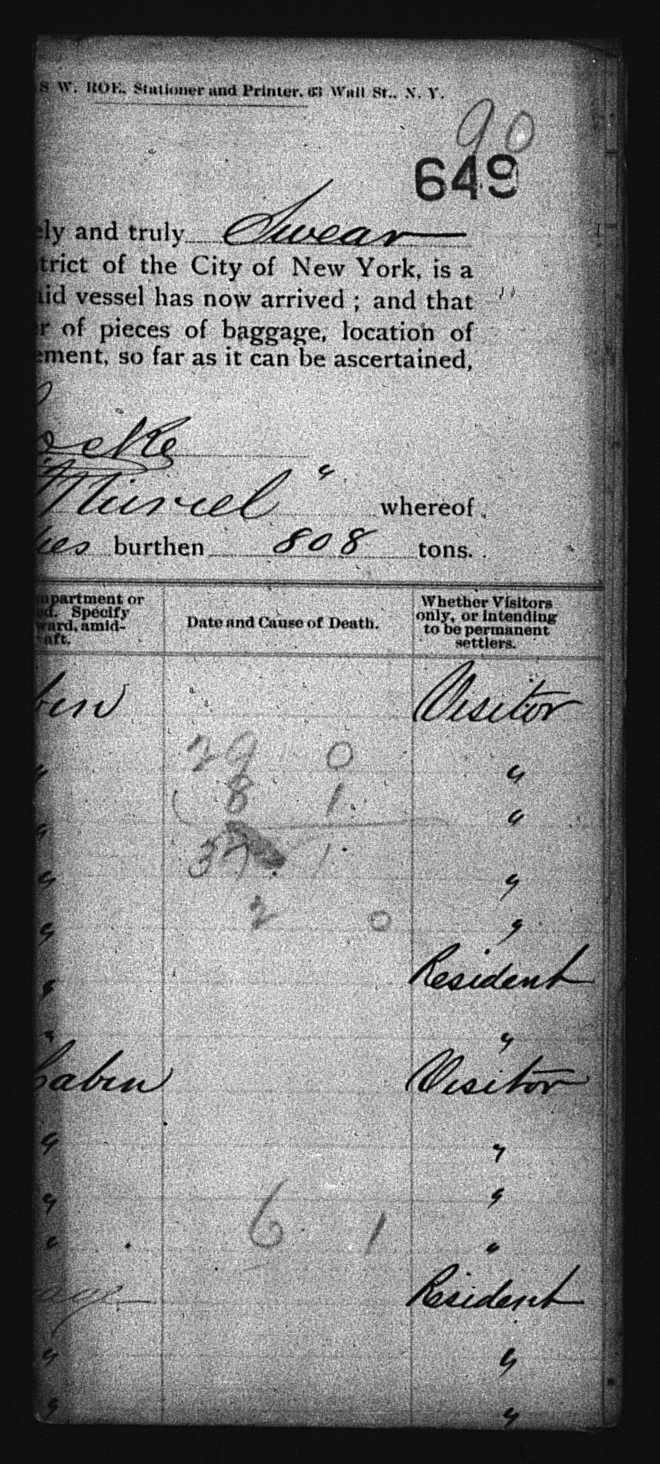 S W. ROE, Stationer and Printer, 63 Wall St., N. Y.
90
649
ely and truly Swear
trict of the City of New York, is a
aid vessel has now arrived ; and that
r of pieces of baggage, location of
ement, so far as it can be ascertained,
ocke
Muriel " whereof
hes burthen 808 tons.
mpartment or
ed. Specify
ward, amid-
aft.
Date and Cause of Death.
Whether Visitors
only, or intending
to be permanent
settlers.
bin Visitor
29 0
" "
8 1
" "
37 1
" "
2 0
" "
" Resident
" "
Cabin Visitor
" "
" "
6 1
" "
age Resident
" "
" "